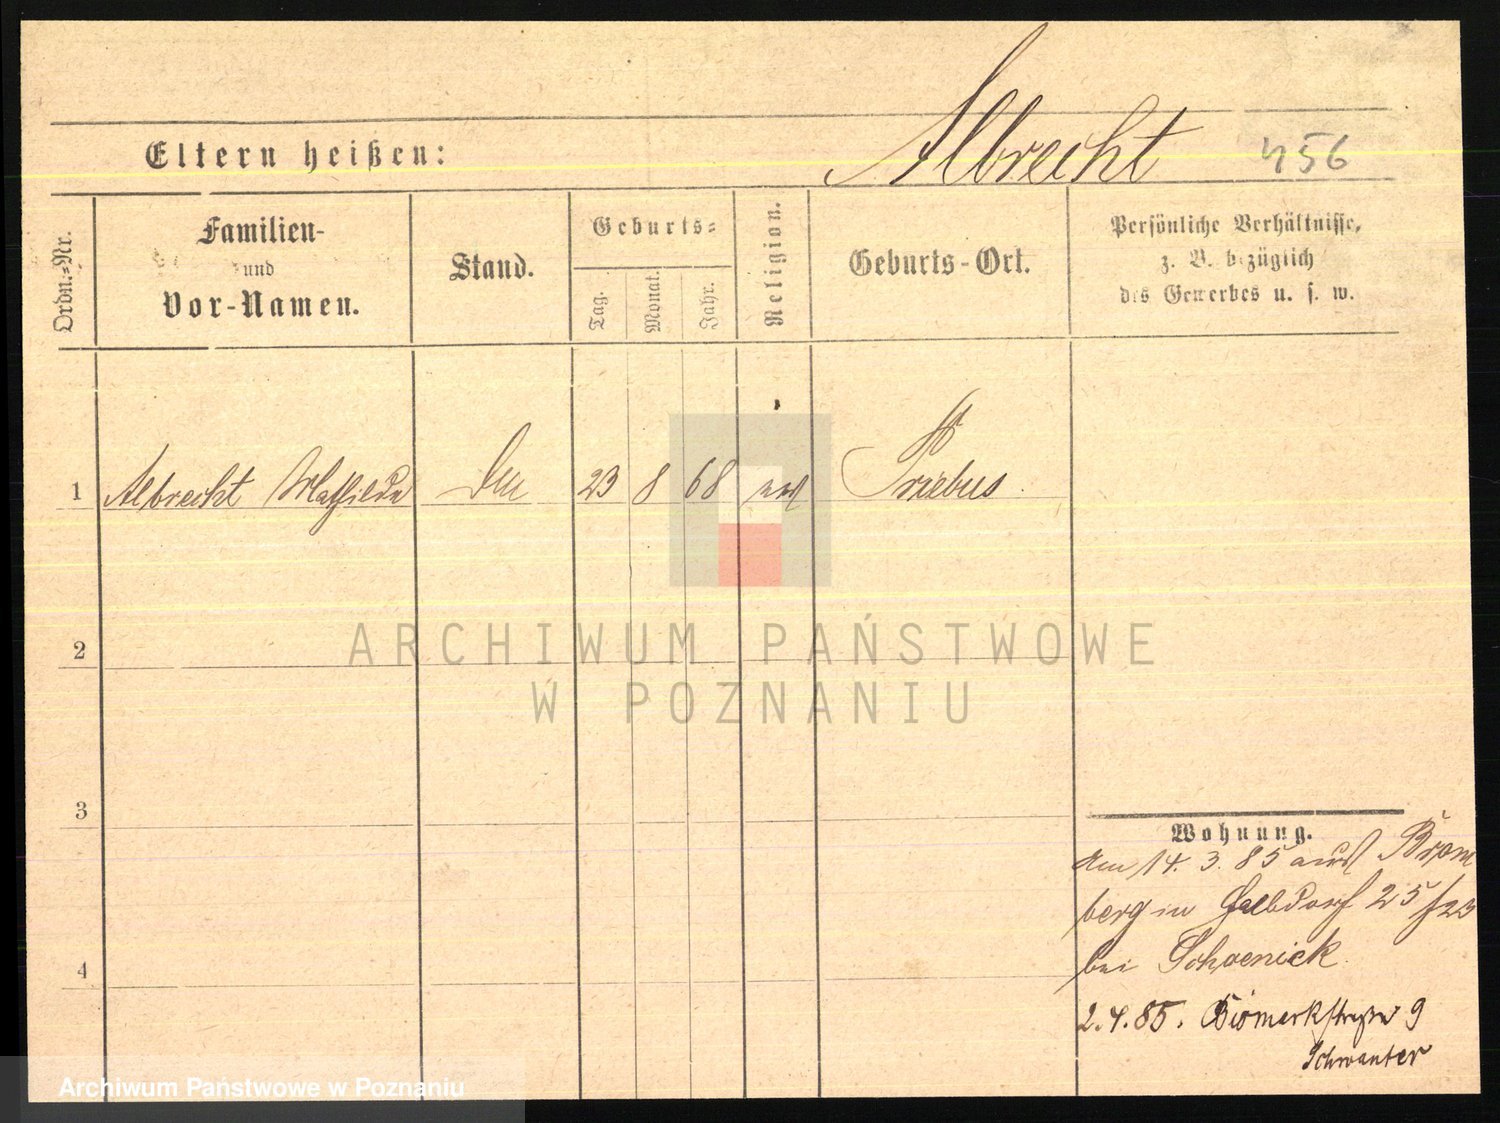 Albrecht 456
Eltern heißen:
Ordn.=Nr.
Familien-
und
Vor-Namen.
Stand.
Geburts=
Tag.
Monat.
Jahr.
Religion.
Geburts-Ort.
Persönliche Verhältnisse,
z. B. bezüglich
des Gewerbes u. s. w.
1 Albrecht Mathilde 23 8 68 Priebus
2
3
4
Wohnung.
am 14. 3. 85 aus Brom
berg in 25/23
bei Schoenick
2.4.85. Bismarkstraße 9
Schwanter
ARCHIWUM PAŃSTWOWE
W POZNANIU
Archiwum Państwowe w Poznaniu